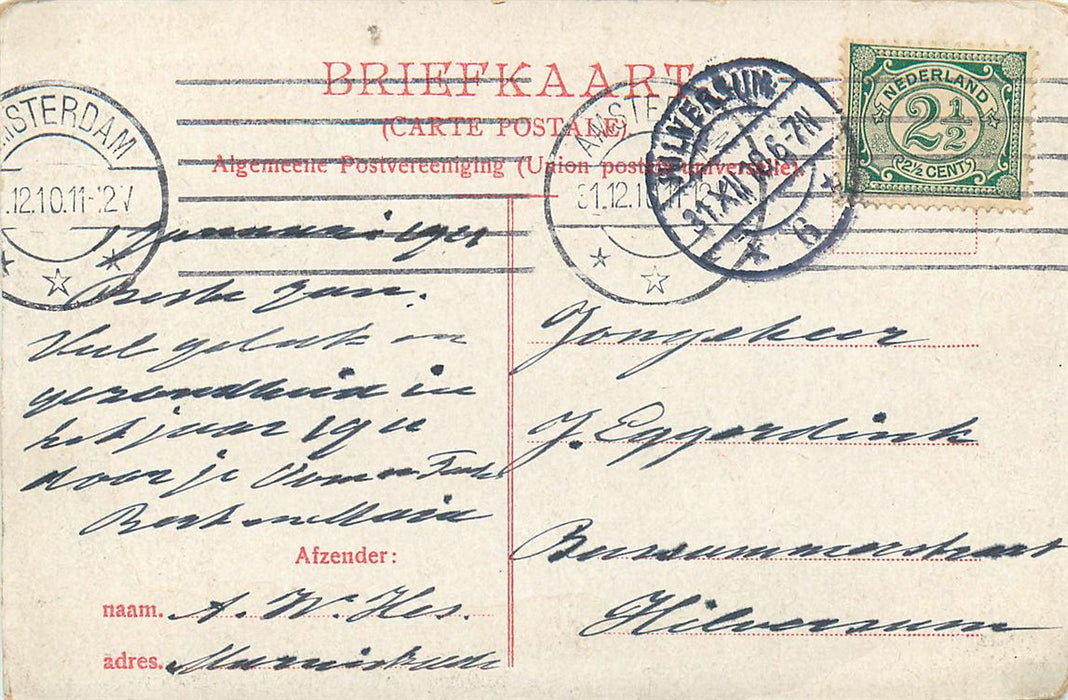 BRIEFKAART
(CARTE POSTALE).
Algemeene Postvereeniging (Union postale universelle).
AMSTERDAM
.12.10.11-12V
AMSTER
31.12.1
HILVERSUM
31.XII.10 6-7N
6
NEDERLAND
2½
2½ CENT
1 Januari 1911
Beste Jan.
Veel geluk en
gezondheid in
het jaar 1911
door je Oom en Tante
Bert en Marie
Afzender:
naam. A. W. Hes.
adres.
Jongeheer
J. Eggerdink
Bussummerstraat
Hilversum